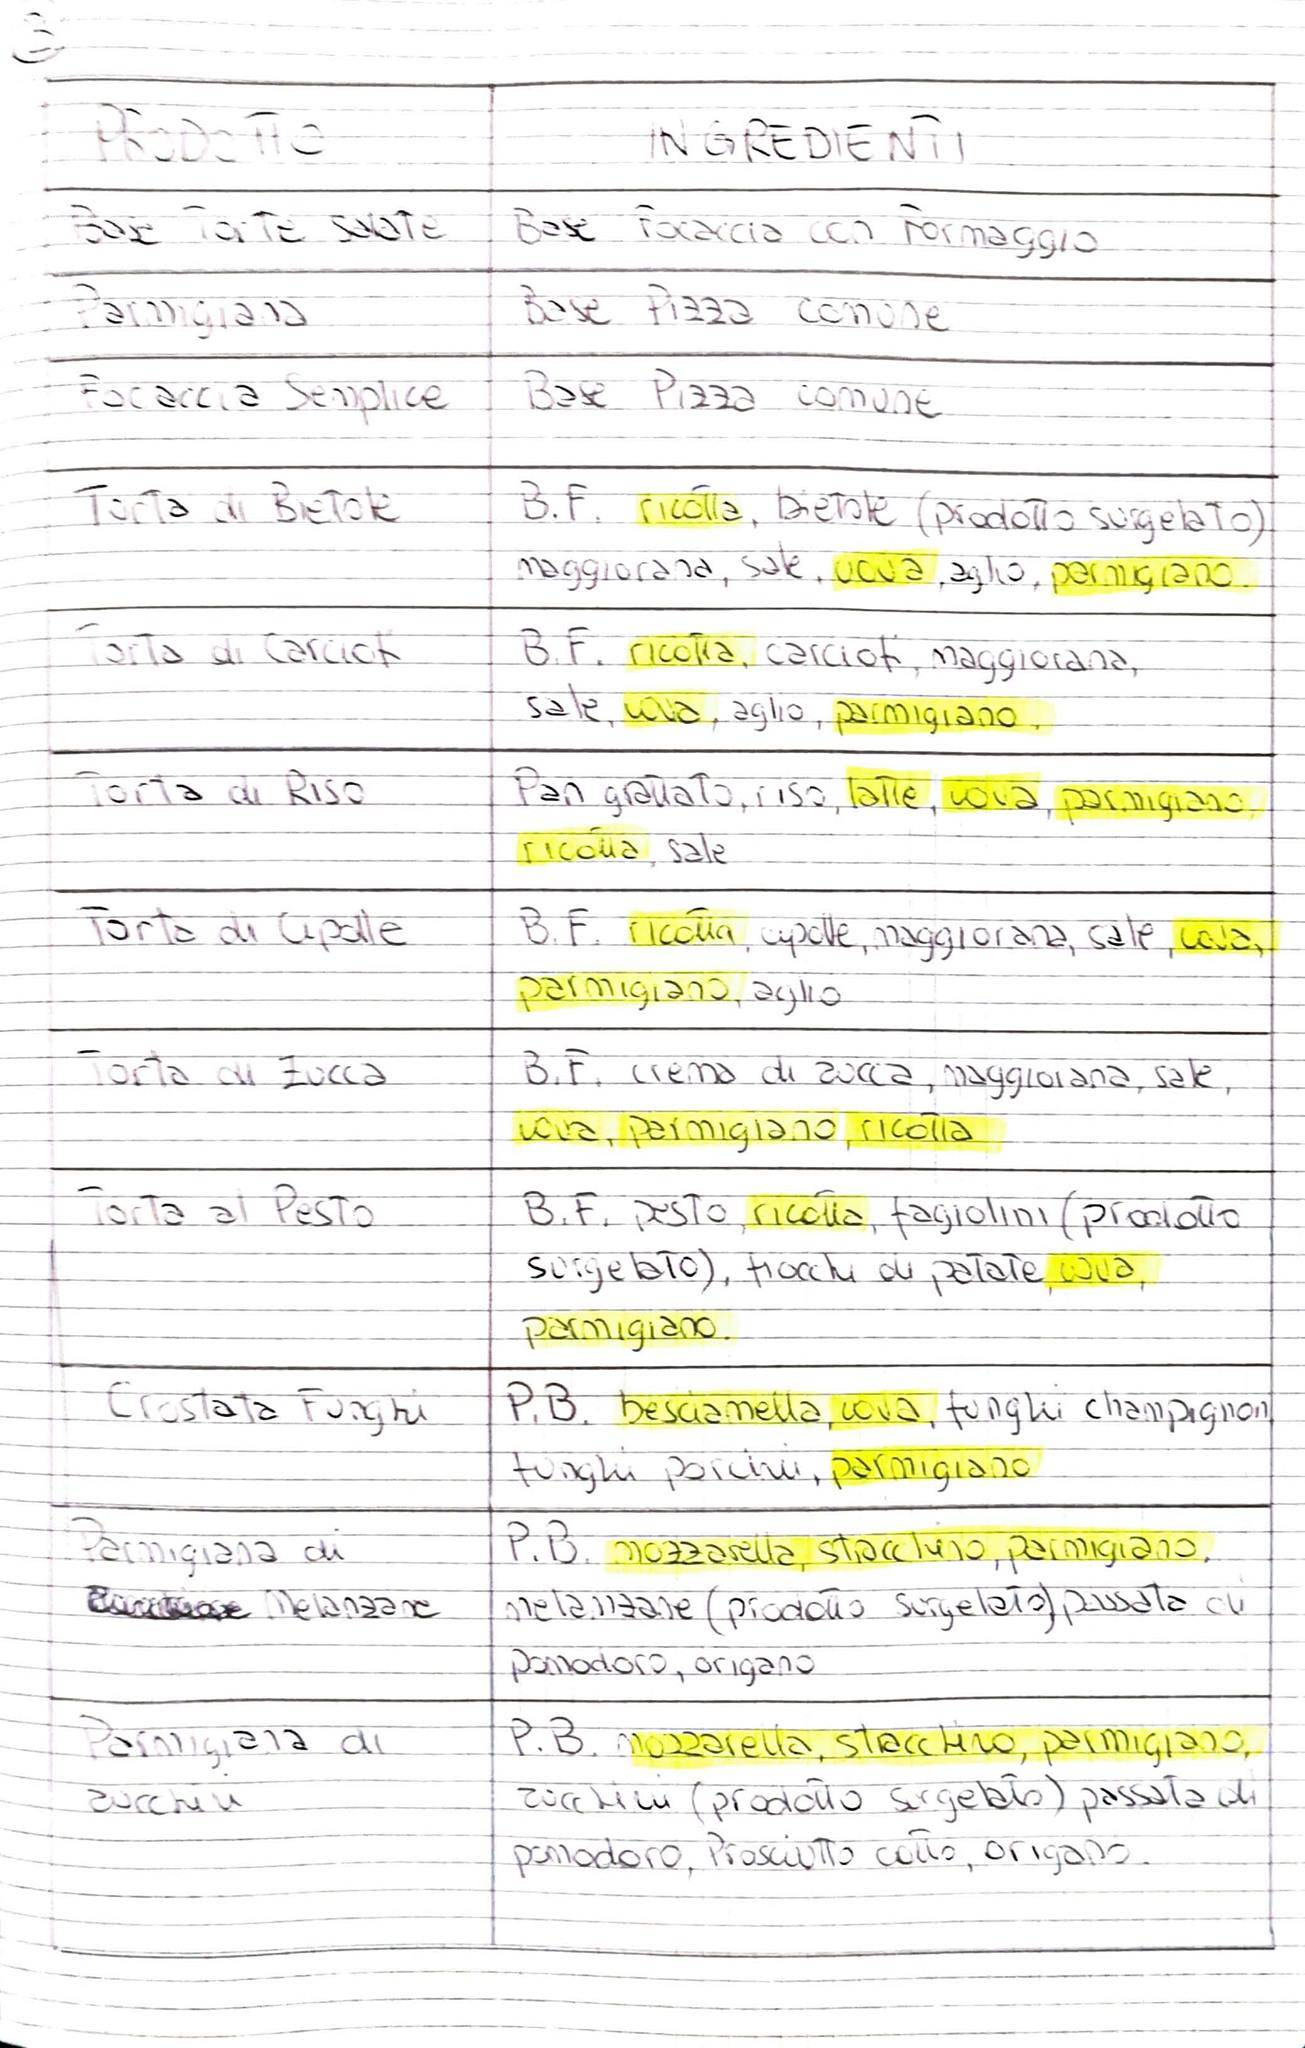 PRODOTTO INGREDIENTI
Base Torte salate Base Focaccia con Formaggio
Parmigiana Base Pizza comune
Focaccia Semplice Base Pizza comune
Torta di Bietole B.F. ricotta, bietole (prodotto surgelato)
maggiorana, sale, uova, aglio, parmigiano.
Torta di Carciofi B.F. ricotta, carciofi, maggiorana,
sale, uova, aglio, parmigiano.
Torta di Riso Pan grattato, riso, latte, uova, parmigiano,
ricotta, sale
Torta di Cipolle B.F. ricotta, cipolle, maggiorana, sale, uova,
parmigiano, aglio
Torta di Zucca B.F. crema di zucca, maggiorana, sale,
uova, parmigiano, ricotta
Torta al Pesto B.F. pesto, ricotta, fagiolini (prodotto
surgelato), fiocchi di patate, uova,
parmigiano.
Crostata Funghi P.B. besciamella, uova, funghi champignon
funghi porcini, parmigiano
Parmigiana di P.B. mozzarella, stracchino, parmigiano,
Melanzane melanzane (prodotto surgelato) passata di
pomodoro, origano
Parmigiana di P.B. mozzarella, stracchino, parmigiano,
zucchini zucchini (prodotto surgelato) passata di
pomodoro, Prosciutto cotto, origano.